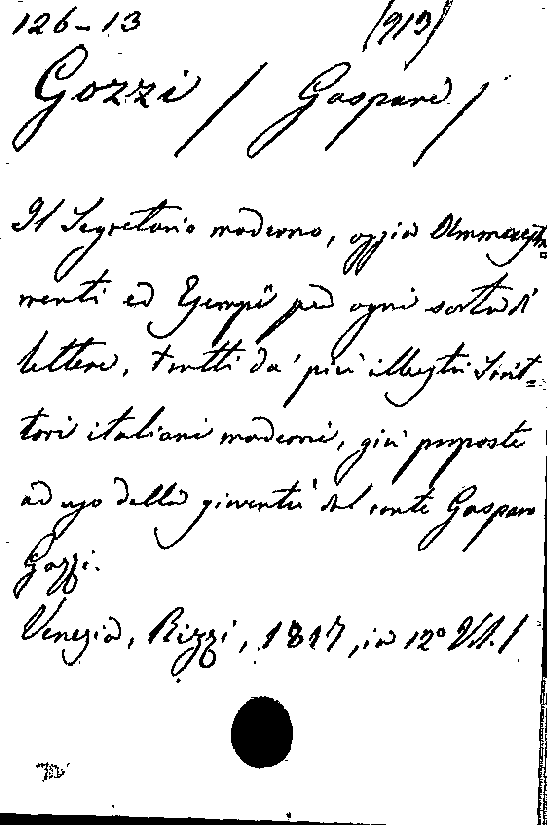 126-13 (913)
Gozzi / Gaspare /
Il Segretario moderno, ossia Ammaestra
menti ed Esempii per ogni sorta di
lettere, tratti da' più illustri Scrit=
tori italiani moderni, già proposte
ad uso della gioventù del conte Gasparo
Gozzi.
Venezia, Rizzi, 1817, in 12° Vol. 1